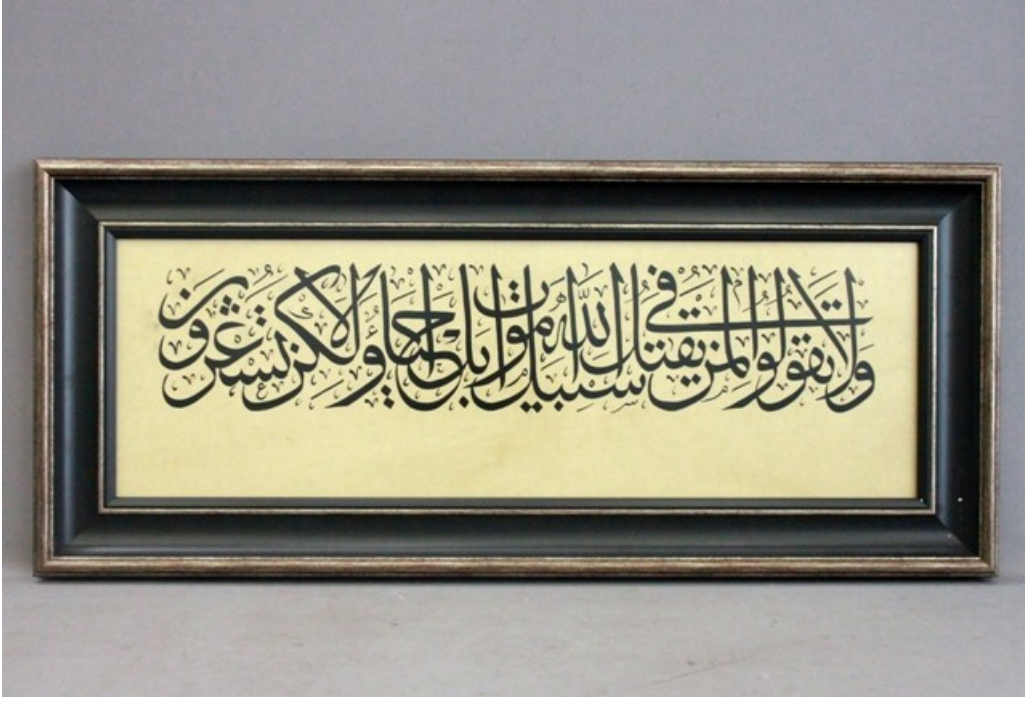 ولا تقولوا لمن يقتل في سبيل الله اموات بل احياء ولاكن لا تشعرون